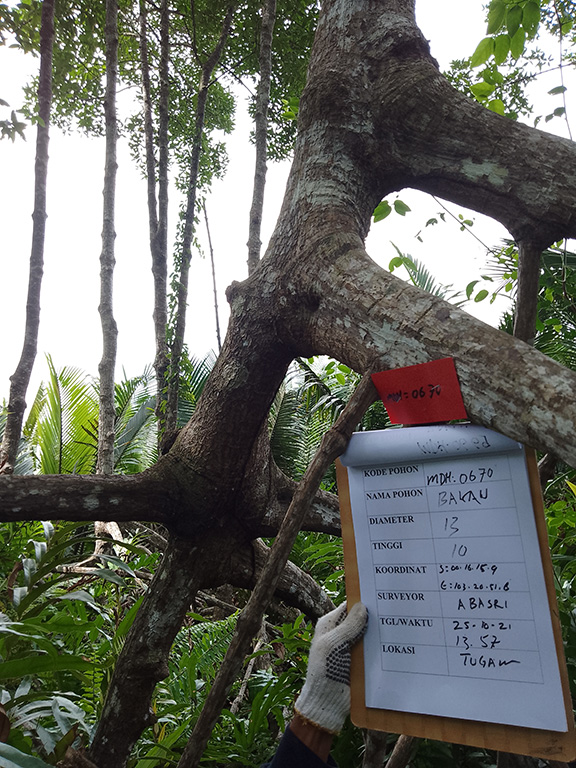 MDH-0670
KODE POHON MDH-0670
NAMA POHON BAKAU
DIAMETER 13
TINGGI 10
KOORDINAT S:00.16.15.9
E:103.20.51.8
SURVEYOR ABASRI
TGL/WAKTU 25-10-21
13.57
LOKASI